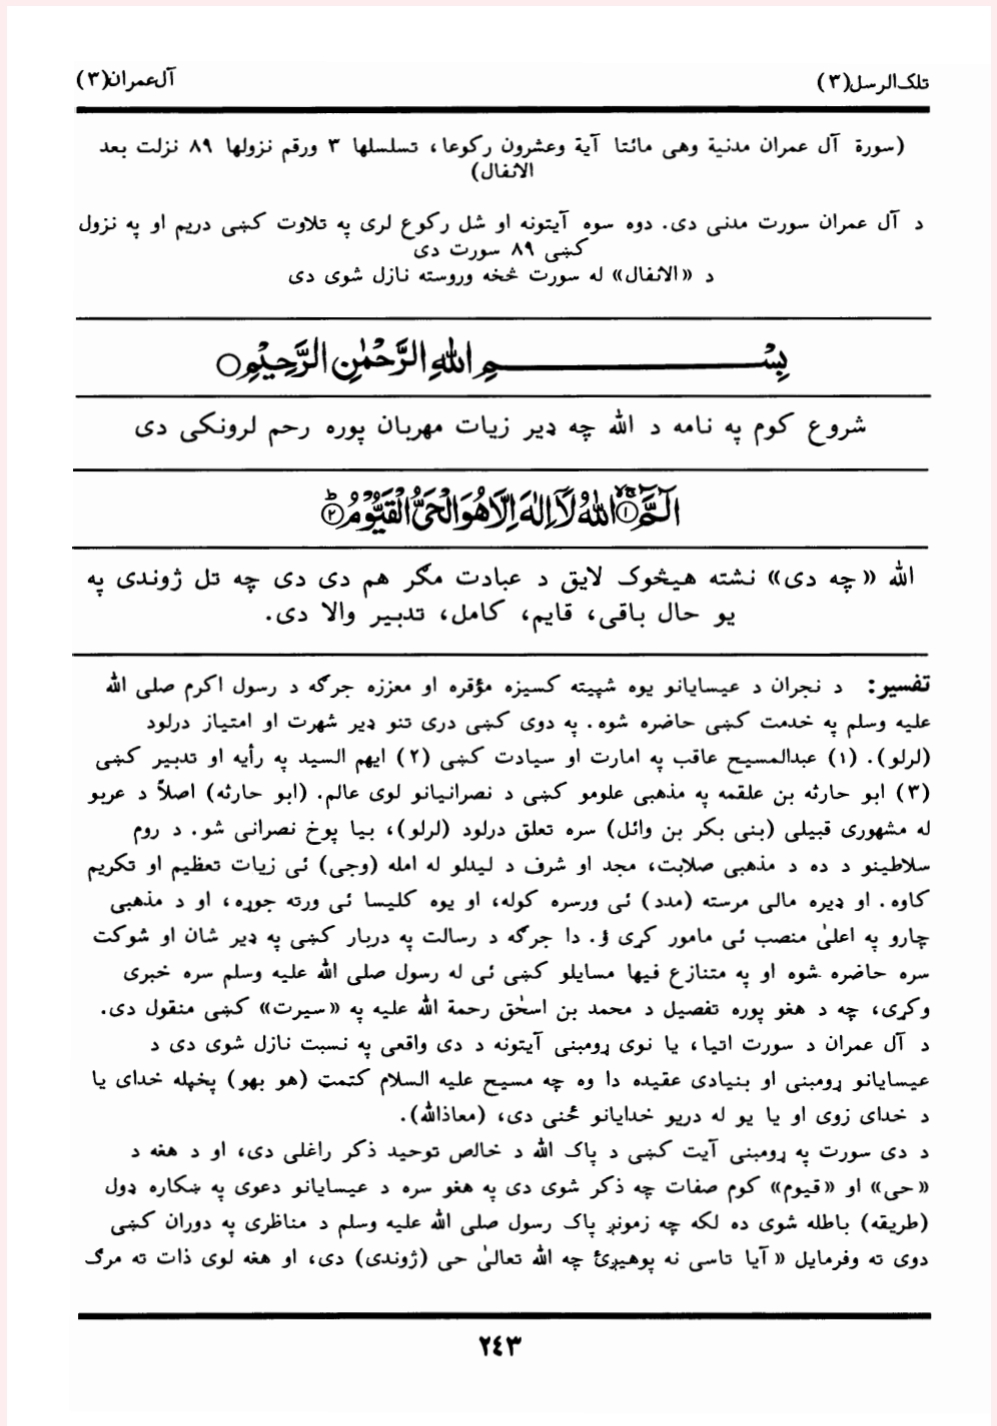 تلک الرسل(٣)
آل عمران(٣)
(سورة آل عمران مدنية وهی مائتا آية وعشرون رکوعا، تسلسلها ٣ ورقم نزولها ٨٩ نزلت بعد
الانفال)
د آل عمران سورت مدنی دی. دوه سوه آيتونه او شل رکوع لری په تلاوت کښی دريم او په نزول
کښی ٨٩ سورت دی
د «الانفال» له سورت څخه وروسته نازل شوی دی
بِسْــــــــــــمِ اللهِ الرَّحْمٰنِ الرَّحِيْمِ○
شروع کوم په نامه د الله چه ډير زيات مهربان پوره رحم لرونکی دی
الٓمّٓ ۙ﴿١﴾ اللهُ لَآ اِلٰهَ اِلَّا هُوَ الْحَیُّ الْقَيُّوْمُ ؕ﴿٢﴾
الله «چه دی» نشته هيڅوک لايق د عبادت مګر هم دی دی چه تل ژوندی په
يو حال باقی، قايم، کامل، تدبير والا دی.
تفسير: د نجران د عيسايانو يوه شپيته کسيزه مؤقره او معززه جرګه د رسول اکرم صلی الله
عليه وسلم په خدمت کښی حاضره شوه. په دوی کښی دری تنو ډير شهرت او امتياز درلود
(لرلو). (١) عبدالمسيح عاقب په امارت او سيادت کښی (٢) ايهم السيد په رأيه او تدبير کښی
(٣) ابو حارثه بن علقمه په مذهبی علومو کښی د نصرانيانو لوی عالم. (ابو حارثه) اصلاً د عربو
له مشهوری قبيلی (بنی بکر بن وائل) سره تعلق درلود (لرلو)، بيا پوخ نصرانی شو. د روم
سلاطينو د ده د مذهبی صلابت، مجد او شرف د ليدلو له امله (وجی) ئی زيات تعظيم او تکريم
کاوه. او ډيره مالی مرسته (مدد) ئی ورسره کوله، او يوه کليسا ئی ورته جوړه، او د مذهبی
چارو په اعلیٰ منصب ئی مامور کړی ؤ. دا جرګه د رسالت په دربار کښی په ډير شان او شوکت
سره حاضره شوه او په متنازع فيها مسايلو کښی ئی له رسول صلی الله عليه وسلم سره خبری
وکړی، چه د هغو پوره تفصيل د محمد بن اسحٰق رحمة الله عليه په «سيرت» کښی منقول دی.
د آل عمران د سورت اتيا، يا نوی ړومبنی آيتونه د دی واقعی په نسبت نازل شوی دی د
عيسايانو ړومبنی او بنيادی عقيده دا وه چه مسيح عليه السلام کتمټ (هو بهو) پخپله خدای يا
د خدای زوی او يا يو له دريو خدايانو ځنی دی، (معاذالله).
د دی سورت په ړومبنی آيت کښی د پاک الله د خالص توحيد ذکر راغلی دی، او د هغه د
«حی» او «قيوم» کوم صفات چه ذکر شوی دی په هغو سره د عيسايانو دعوی په ښکاره ډول
(طريقه) باطله شوی ده لکه چه زمونږ پاک رسول صلی الله عليه وسلم د مناظری په دوران کښی
دوی ته وفرمايل «آيا تاسی نه پوهيږئ چه الله تعالیٰ حی (ژوندی) دی، او هغه لوی ذات ته مرګ
٢٤٣